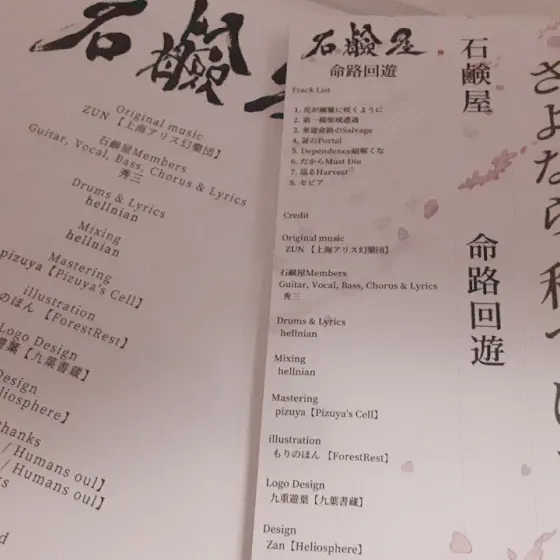 石鹸屋
Original music
ZUN【上海アリス幻樂団】
石鹸屋Members
Guitar, Vocal, Bass, Chorus & Lyrics
秀三
Drums & Lyrics
hellnian
Mixing
hellnian
Mastering
pizuya【Pizuya's Cell】
illustration
もりのほん【ForestRest】
Logo Design
遊葉【九葉書蔵】
Design
Heliosphere】
thanks
/ Humans oul】
/ Humans oul】
石鹸屋
命路回遊
Track List
1. 花が綱雅に咲くように
2. 第一種領域遭遇
3. 重遊命路のSalvage
4. 謎のPortal
5. Dependence紐解くな
6. だからMust Die
7. 巡るHarvest
8. セピア
Credit
Original music
ZUN【上海アリス幻樂団】
石鹸屋Members
Guitar, Vocal, Bass, Chorus & Lyrics
秀三
Drums & Lyrics
hellnian
Mixing
hellnian
Mastering
pizuya【Pizuya's Cell】
illustration
もりのほん【ForestRest】
Logo Design
九重遊葉【九葉書蔵】
Design
Zan【Heliosphere】
石鹸屋 命路回遊
さよなら